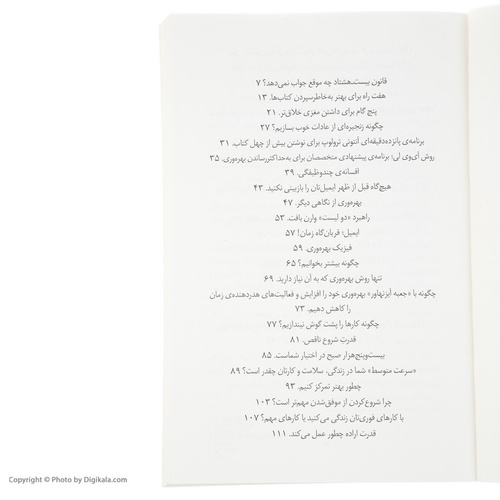 قانون بیست‌ـ‌هشتاد چه موقع جواب نمی‌دهد؟ ۷
هفت راه برای بهتر به‌خاطرسپردن کتاب‌ها. ۱۳
پنج گام برای داشتن مغزی خلاق‌تر. ۲۱
چگونه زنجیره‌ای از عادات خوب بسازیم؟ ۲۷
برنامه‌ی پانزده‌دقیقه‌ای آنتونی ترولوپ برای نوشتن بیش از چهل کتاب. ۳۱
روش آی‌وی لی؛ برنامه‌ی پیشنهادی متخصصان برای به‌حداکثررساندن بهره‌وری. ۳۵
افسانه‌ی چندوظیفگی. ۳۹
هیچ‌گاه قبل از ظهر ایمیل‌تان را بازبینی نکنید. ۴۳
بهره‌وری از نگاهی دیگر. ۴۷
راهبرد «دو لیست» وارن بافت. ۵۳
ایمیل؛ قربان‌گاه زمان! ۵۷
فیزیک بهره‌وری. ۵۹
چگونه بیشتر بخوانیم؟ ۶۵
تنها روش بهره‌وری که به آن نیاز دارید. ۶۹
چگونه با «جعبه آیزنهاور» بهره‌وری خود را افزایش و فعالیت‌های هدردهنده‌ی زمان
را کاهش دهیم. ۷۳
چگونه کارها را پشت گوش نیندازیم؟ ۷۷
قدرتِ شروع ناقص. ۸۱
بیست‌وپنج‌هزار صبح در اختیار شماست. ۸۵
«سرعت متوسط» شما در زندگی، سلامت و کارتان چقدر است؟ ۸۹
چطور بهتر تمرکز کنیم. ۹۳
چرا شروع‌کردن از موفق‌شدن مهم‌تر است؟ ۱۰۳
با کارهای فوری‌تان زندگی می‌کنید یا کارهای مهم؟ ۱۰۷
قدرت اراده چطور عمل می‌کند. ۱۱۱
Copyright © Photo by Digikala.com